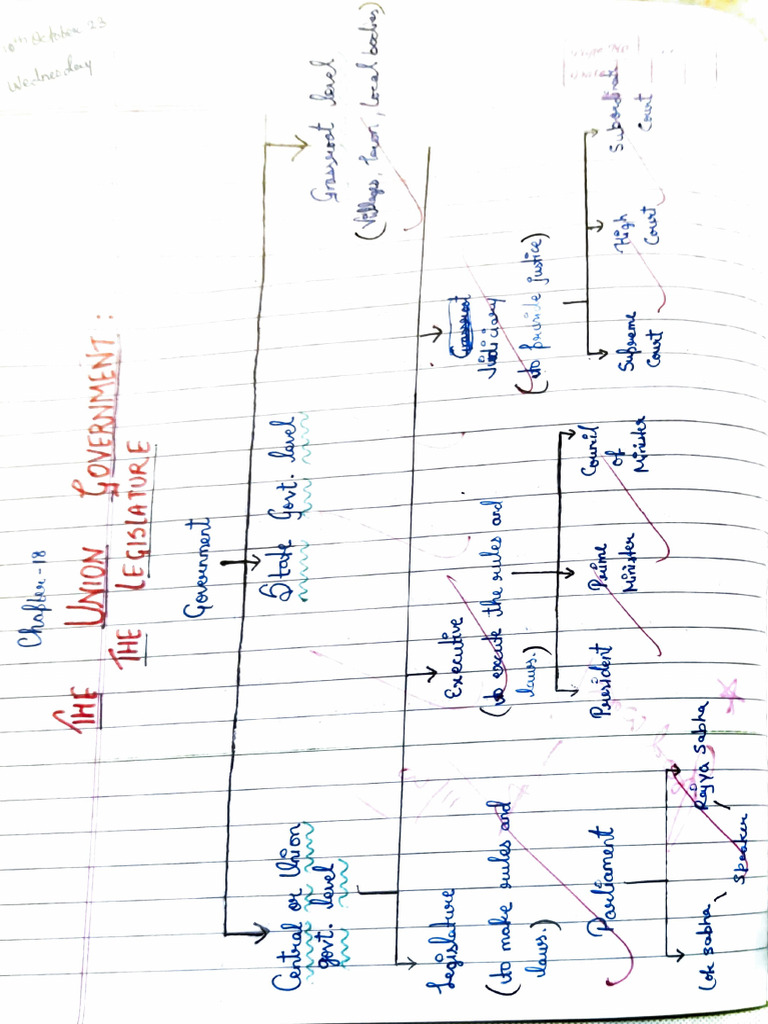 10th October 23
Wednesday
Chapter-18
THE UNION GOVERNMENT:
THE LEGISLATURE
Government
Central or Union
govt. level
State Govt. level
Grassroot level
(Villages, town, local bodies)
Legislature
(to make rules and
laws.)
Executive
(to execute the rules and
laws.)
Grassroot
Judiciary
(to provide justice)
Parliament
Lok Sabha
Rajya Sabha
Speaker
President
Prime
Minister
Council
of
Minister
Supreme
Court
High
Court
Subordinate
Court